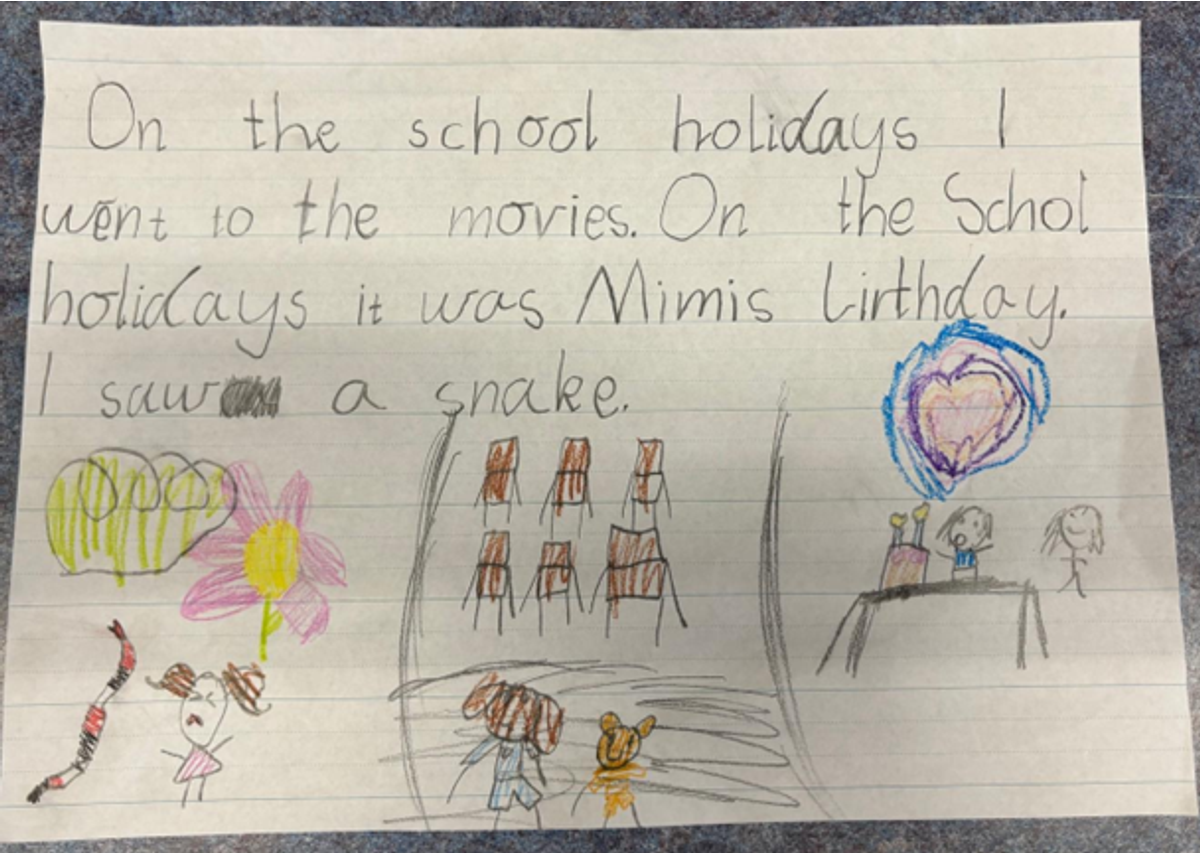 On the school holidays I
went to the movies. On the Schol
holidays it was Mimis birthday.
I saw a snake.